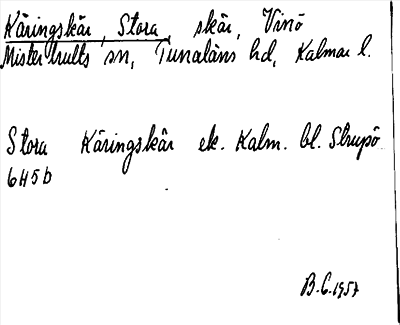 Käringskär, Stora, skär, Vinö
Misterhults sn, Tunaläns hd, Kalmar l.
Stora Käringskär ek. Kalm. bl. Strupö
6H5b
B.C. 1957